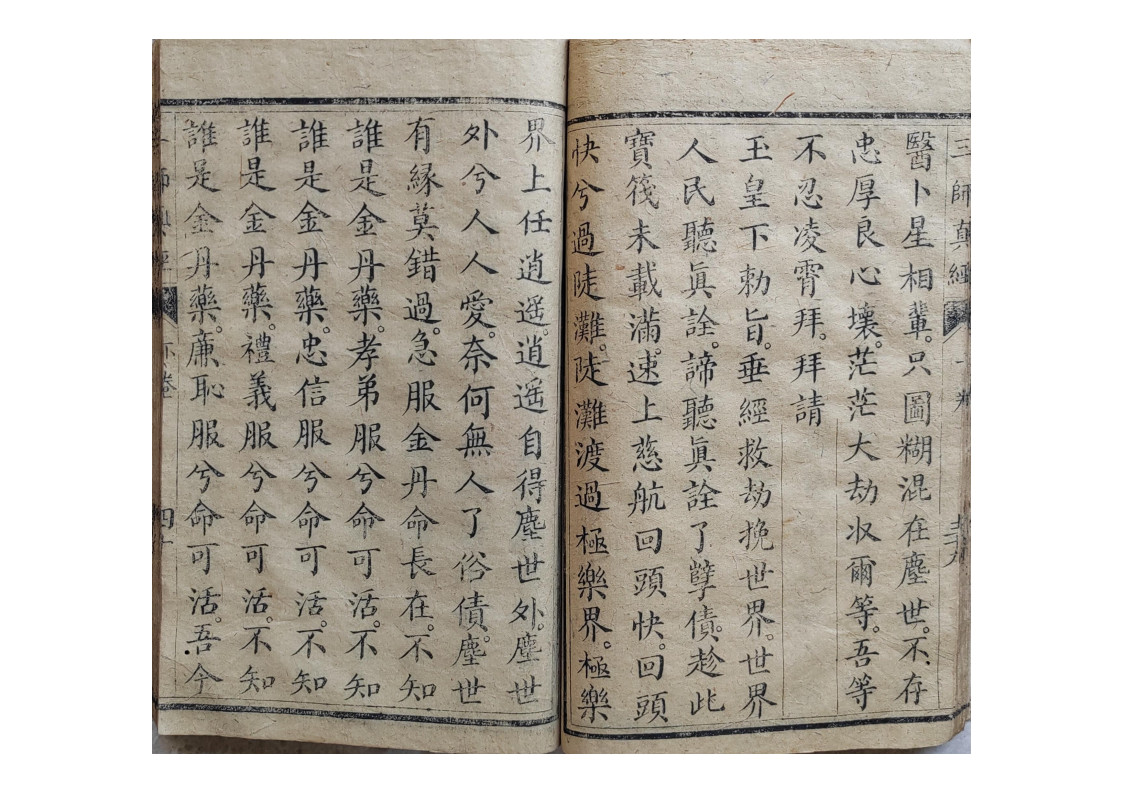 三師真經
醫卜星相輩。只圖糊混在塵世。不存
忠厚良心壞。茫茫大劫收爾等。吾等
不忍凌霄拜。拜請
玉皇下勅旨。垂經救劫挽世界。世界
人民聽眞詮。諦聽眞詮了孽債。趁此
寶筏未載滿。速上慈航回頭快。回頭
快兮過陡灘。陡灘渡過極樂界。極樂
界上任逍遥。逍遥自得塵世外。塵世
外兮人人愛。奈何無人了俗債。塵世
有緣莫錯過。急服金丹命長在。不知
誰是金丹藥。孝弟服兮命可活。不知
誰是金丹藥。忠信服兮命可活。不知
誰是金丹藥。禮義服兮命可活。不知
誰是金丹藥。廉恥服兮命可活。吾今
下卷 四十